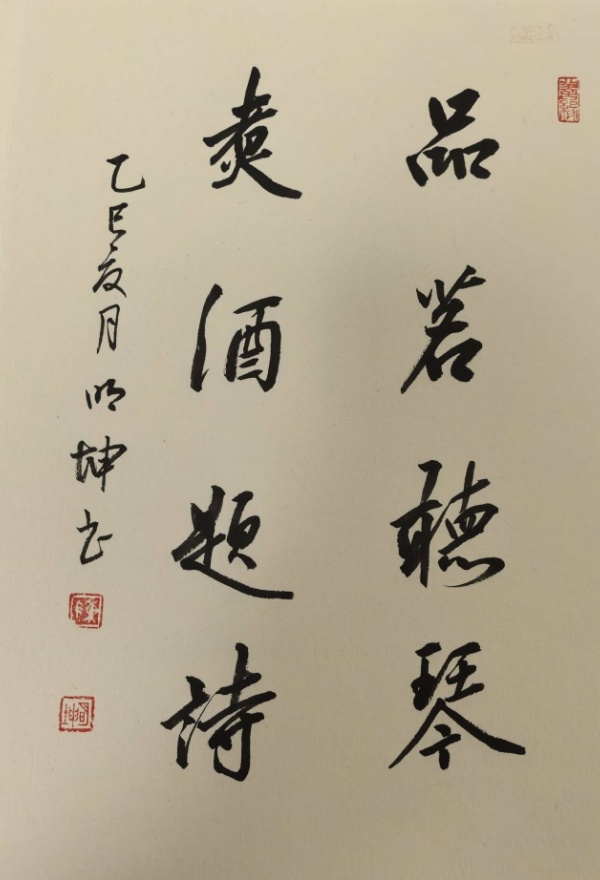 品茗聽琴
煮酒題詩
乙巳夏月明坤书